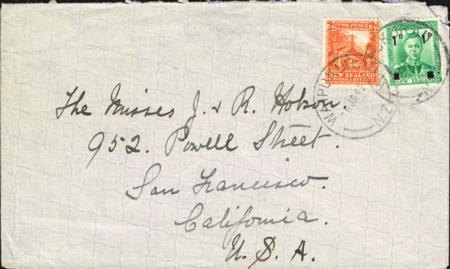 TWO PENCE
NEW ZEALAND
NEW ZEALAND
The Misses J. & R. Hobson
952. Powell Street.
San Francisco.
California.
U. S. A.